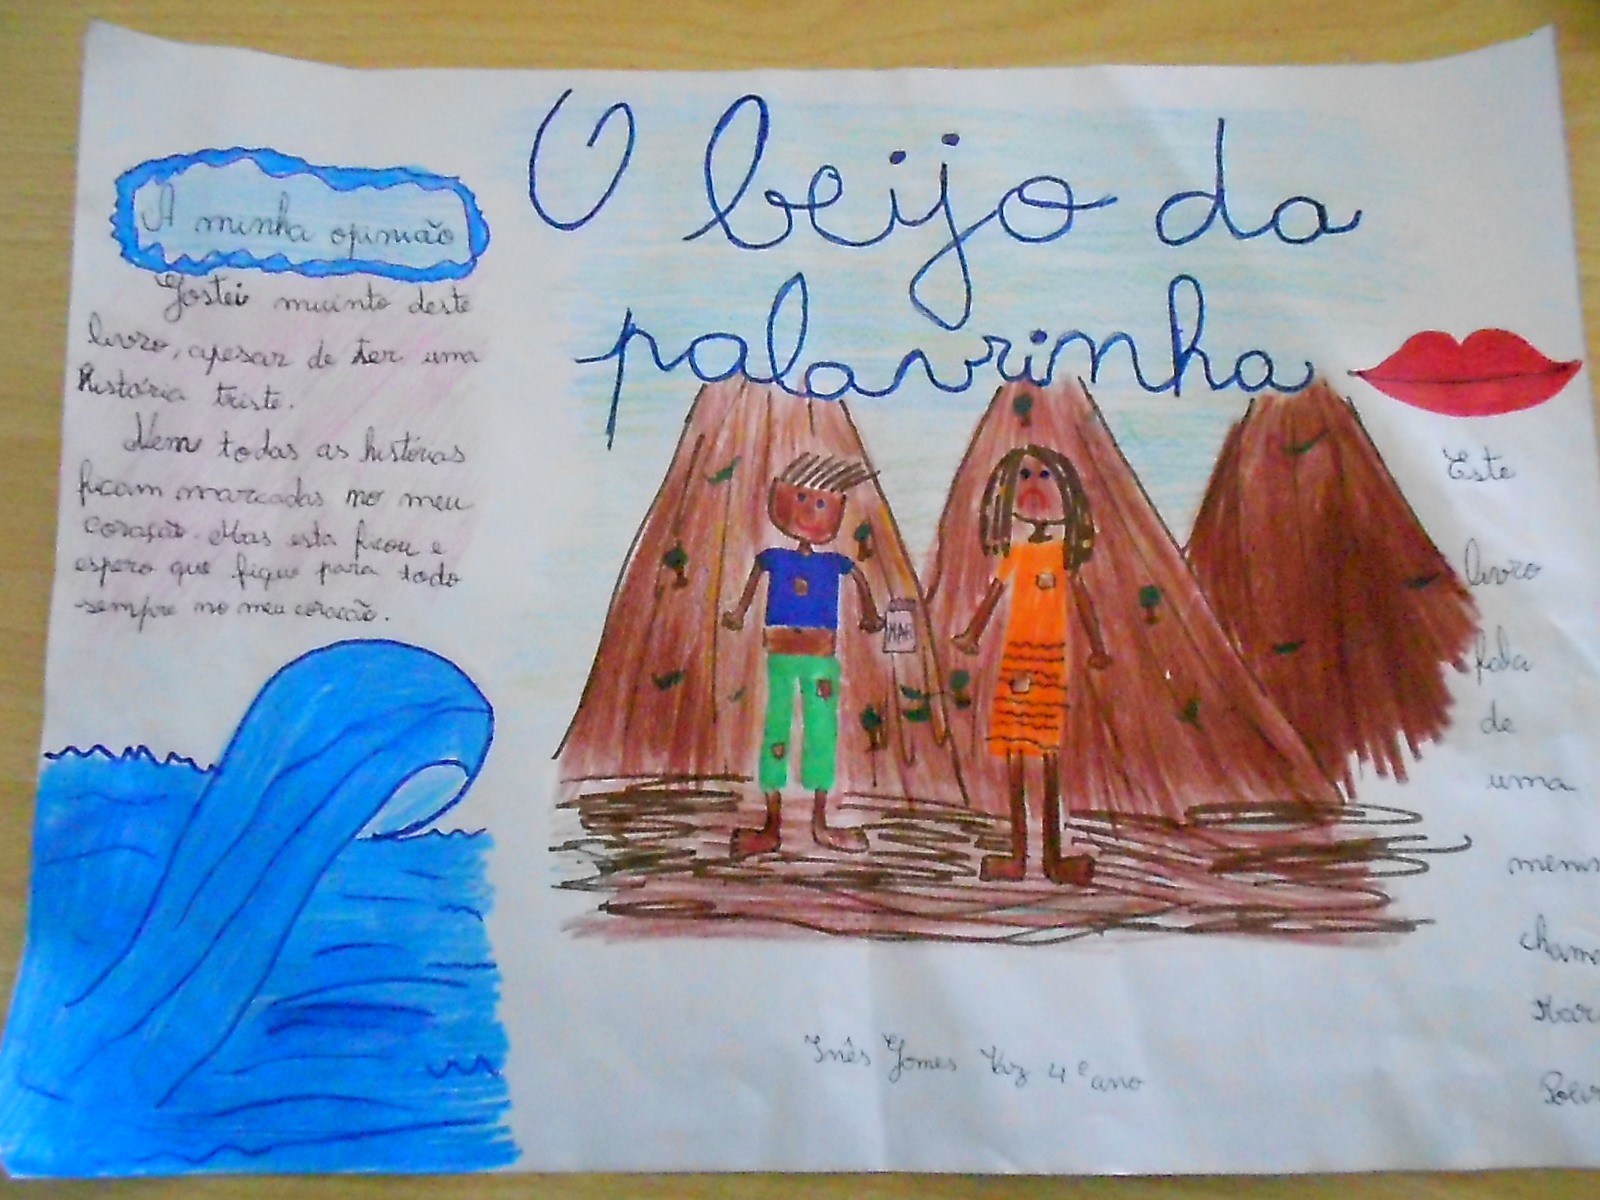 O beijo da
palavrinha
A minha opinião
Gostei muinto deste
livro, apesar de ter uma
história triste.
Nem todas as histórias
ficam marcadas no meu
coração. Mas esta ficou e
espero que fique para todo
sempre no meu coração.
MAR
Este
livro
fala
de
uma
Inês Gomes Vaz 4º ano